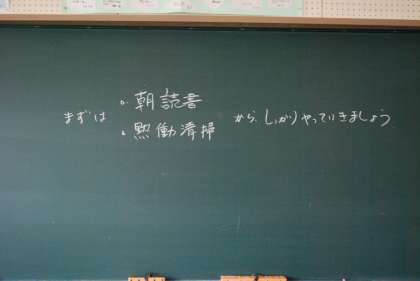 まずは
。朝読書
。黙働清掃
から、しっかりやっていきましょう